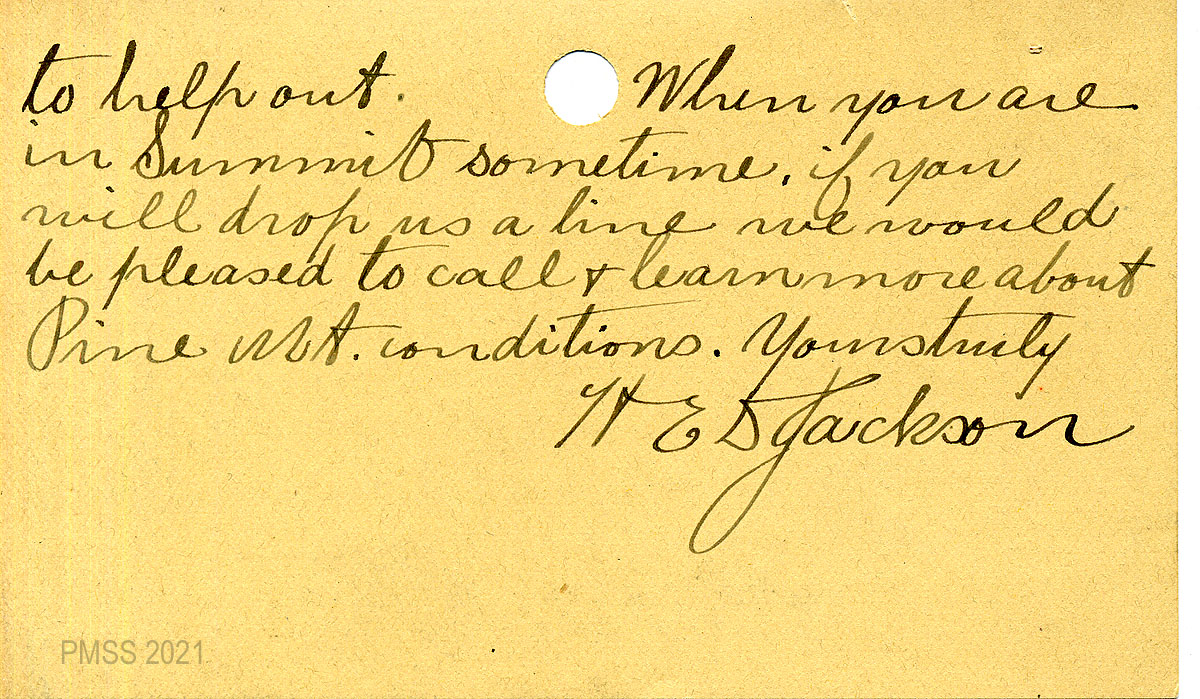 to help out. When you are
in Summit sometime, if you
will drop us a line we would
be pleased to call & learn more about
Pine Mt. conditions. Yours truly
H E D Jackson
PMSS 2021